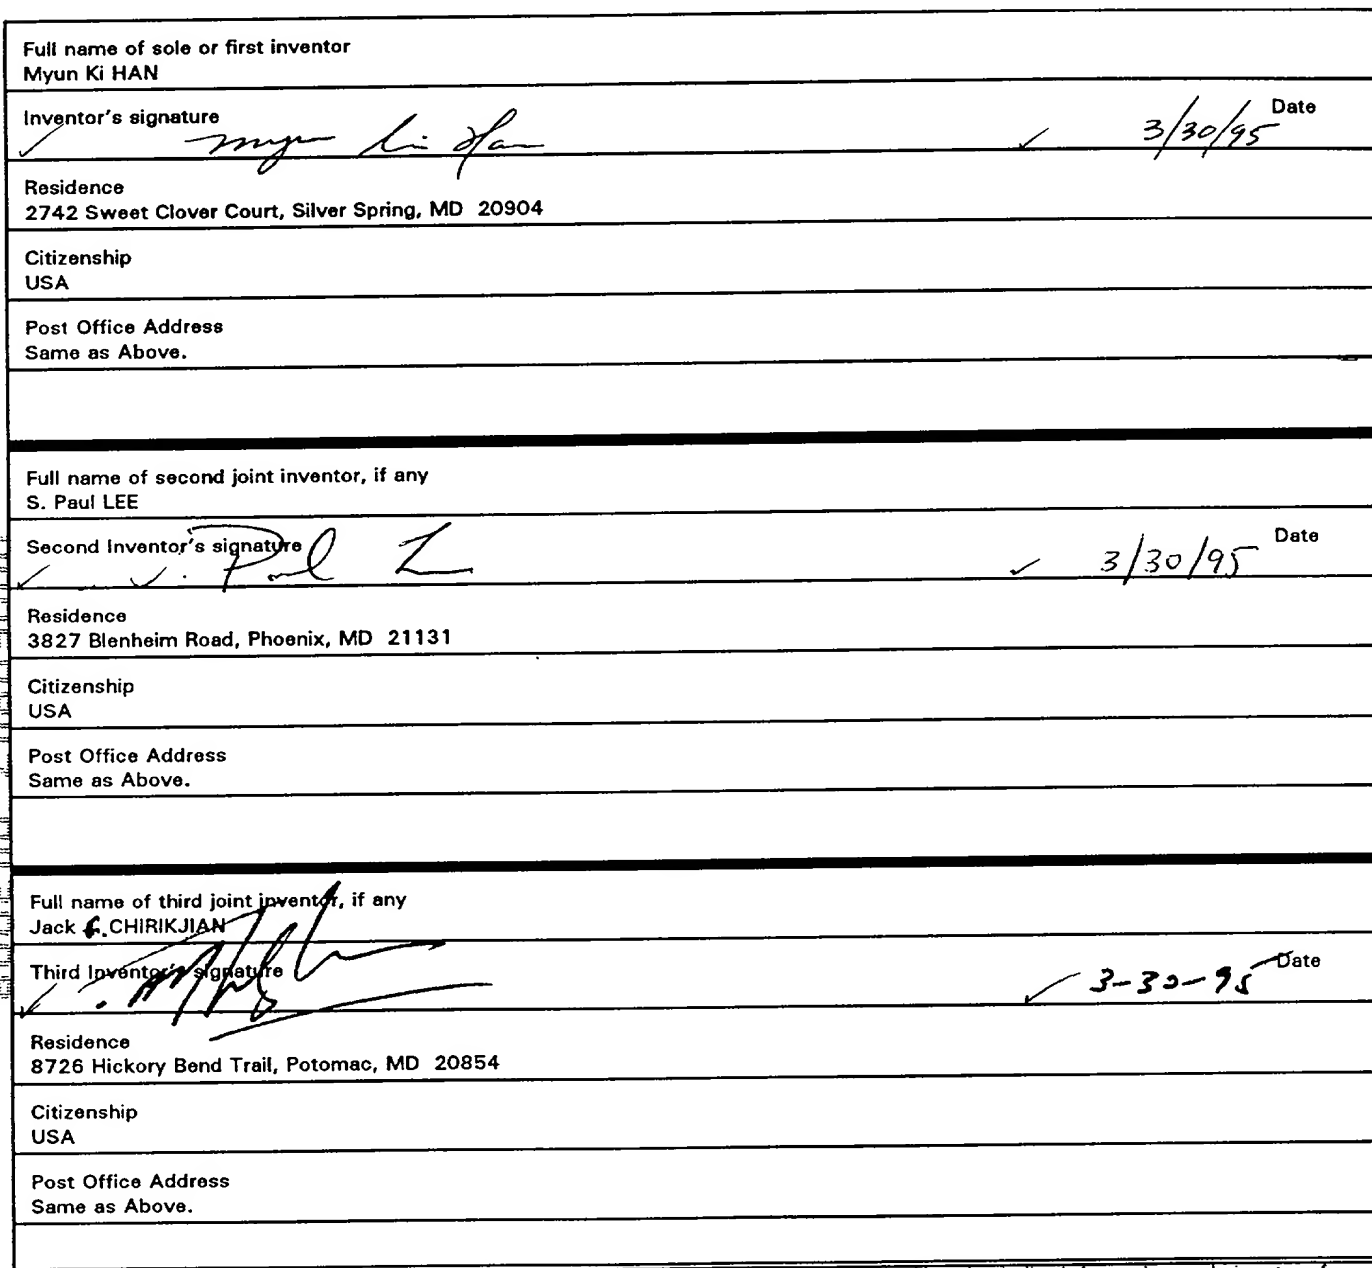 Full name of sole or first inventor
Myun Ki HAN
Inventor's signature
Myun Ki Han 3/30/95 Date
Residence
2742 Sweet Clover Court, Silver Spring, MD 20904
Citizenship
USA
Post Office Address
Same as Above.
Full name of second joint inventor, if any
S. Paul LEE
Second Inventor's signature
S. Paul Lee 3/30/95 Date
Residence
3827 Blenheim Road, Phoenix, MD 21131
Citizenship
USA
Post Office Address
Same as Above.
Full name of third joint inventor, if any
Jack CHIRIKJIAN
Third Inventor's signature
3-30-95 Date
Residence
8726 Hickory Bend Trail, Potomac, MD 20854
Citizenship
USA
Post Office Address
Same as Above.